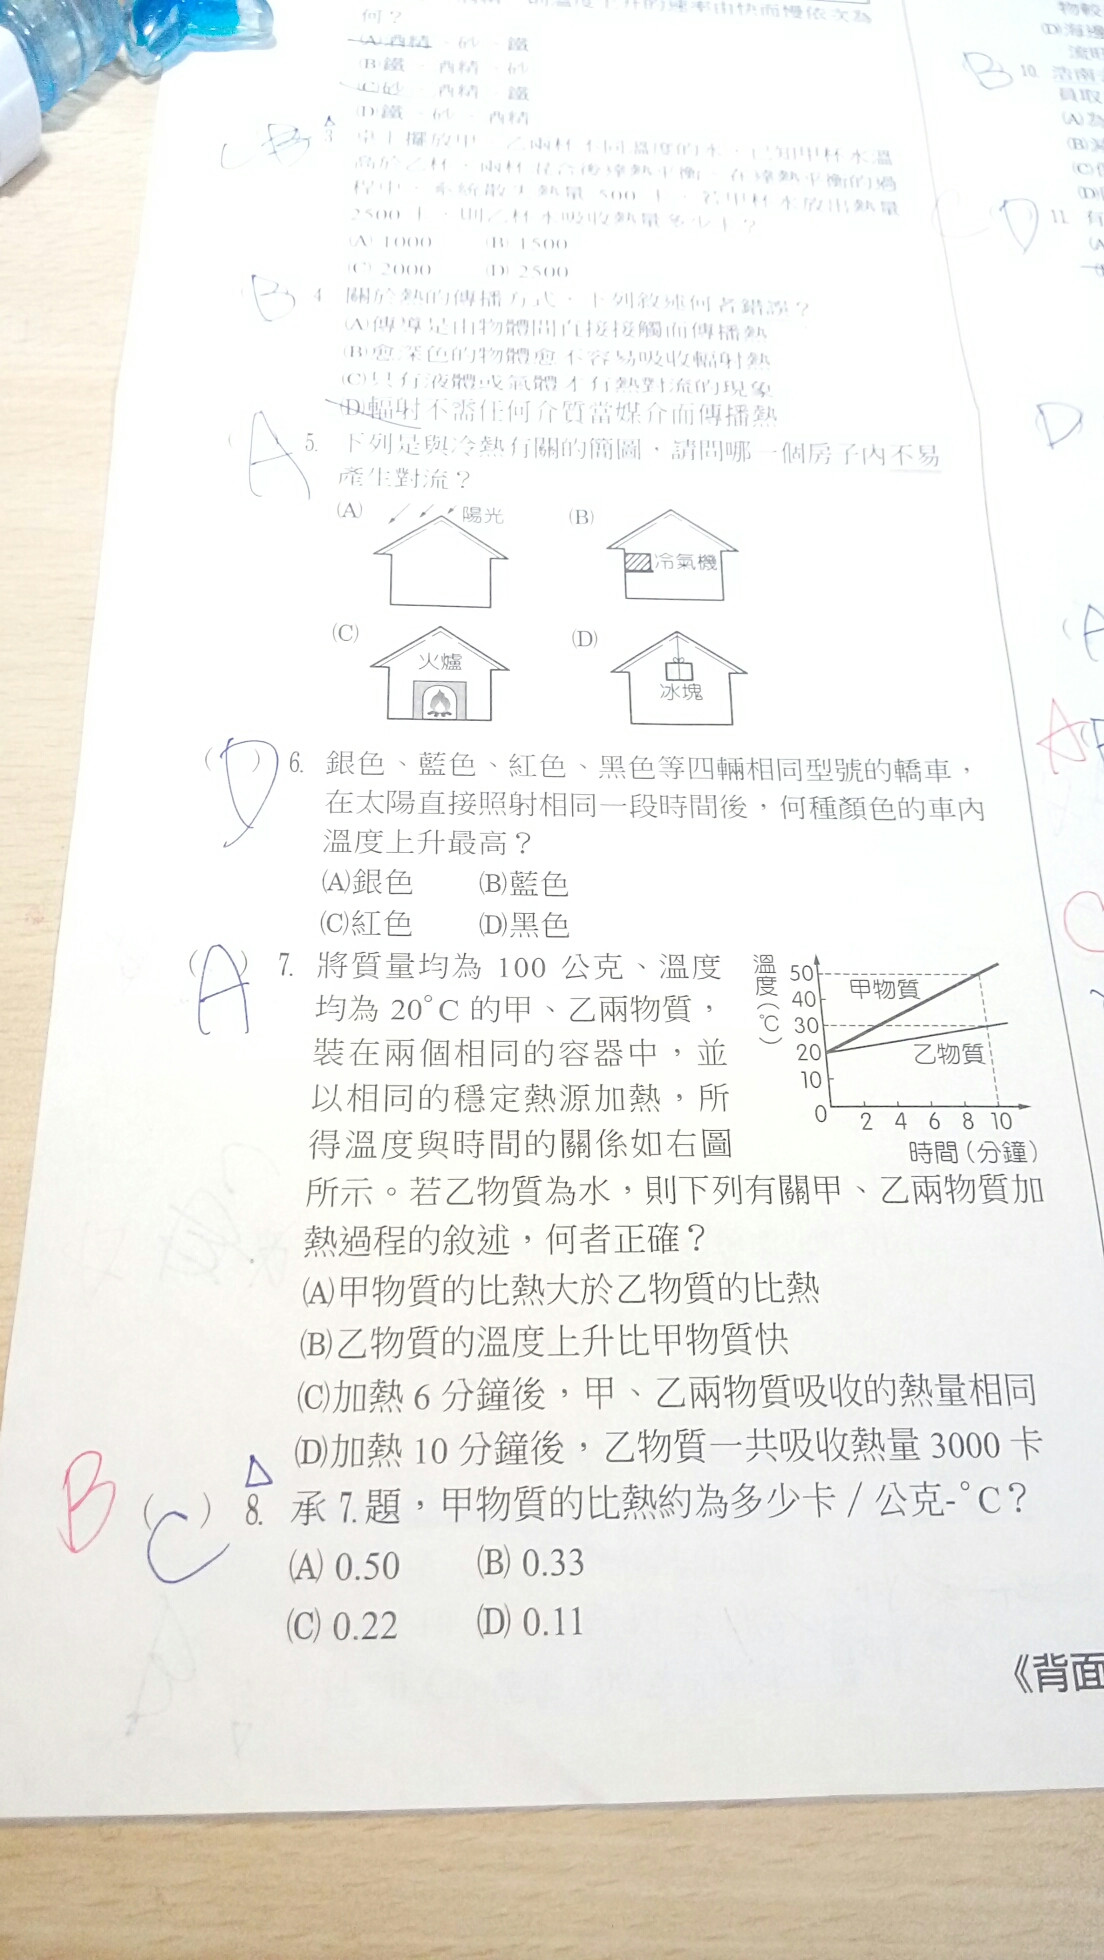 何？
(A)酒精、砂、鐵
(B)鐵、酒精、砂
(C)砂、酒精、鐵
(D)鐵、砂、酒精
C B 3. 桌上擺放甲、乙兩杯不同溫度的水，已知甲杯水溫
高於乙杯，兩杯混合後達熱平衡，在達熱平衡的過
程中，系統散失熱量 500 卡，若甲杯水放出熱量
2500 卡，則乙杯水吸收熱量多少卡？
(A) 1000 (B) 1500
(C) 2000 (D) 2500
B 4. 關於熱的傳播方式，下列敘述何者錯誤？
(A)傳導是由物體間直接接觸而傳播熱
(B)愈深色的物體愈不容易吸收輻射熱
(C)只有液體或氣體才有熱對流的現象
(D)輻射不需任何介質當媒介而傳播熱
( A ) 5. 下列是與冷熱有關的簡圖，請問哪一個房子內不易
產生對流？
(A) 陽光 (B) 冷氣機
(C) 火爐 (D) 冰塊
( D ) 6. 銀色、藍色、紅色、黑色等四輛相同型號的轎車，
在太陽直接照射相同一段時間後，何種顏色的車內
溫度上升最高？
(A)銀色 (B)藍色
(C)紅色 (D)黑色
( A ) 7. 將質量均為 100 公克、溫度
均為 20°C 的甲、乙兩物質，
裝在兩個相同的容器中，並
以相同的穩定熱源加熱，所
得溫度與時間的關係如右圖
所示。若乙物質為水，則下列有關甲、乙兩物質加
熱過程的敘述，何者正確？
溫度(℃)
50
40
30
20
10
0 2 4 6 8 10
甲物質
乙物質
時間(分鐘)
(A)甲物質的比熱大於乙物質的比熱
(B)乙物質的溫度上升比甲物質快
(C)加熱 6 分鐘後，甲、乙兩物質吸收的熱量相同
(D)加熱 10 分鐘後，乙物質一共吸收熱量 3000 卡
B ( C ) △ 8. 承 7.題，甲物質的比熱約為多少卡／公克-°C？
(A) 0.50 (B) 0.33
(C) 0.22 (D) 0.11
《背面
物較
(D)海邊
流
B 10. 浩南
員取
(A)為
(B)
(C)
(D)
D 11. 有
(A
D
A
A
C